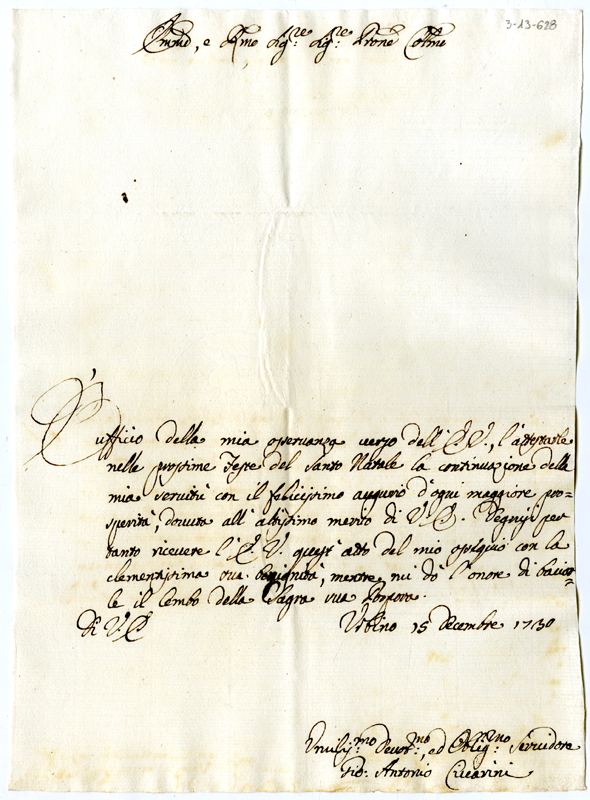 3-13-628
Emo, e Rmo Sigre Sigre Prone Colmo
È ufficio della mia osservanza verso dell'E. V., l'attestarle
nelle prossime Feste del Santo Natale la continuazione della
mia servitù con il felicissimo augurio d'ogni maggiore pro=
sperità, dovuta all'altissimo merito di V. E. Degnisi per
tanto ricevere l'E. V. quest'atto del mio ossequio con la
clementissima sua benignità, mentre mi dò l'onore di baciar=
le il lembo della Sagra sua Porpora.
Di V. E.
Urbino 15 Decembre 1730
Umilismo Devotmo, ed Obligmo Servidore
Gio: Antonio